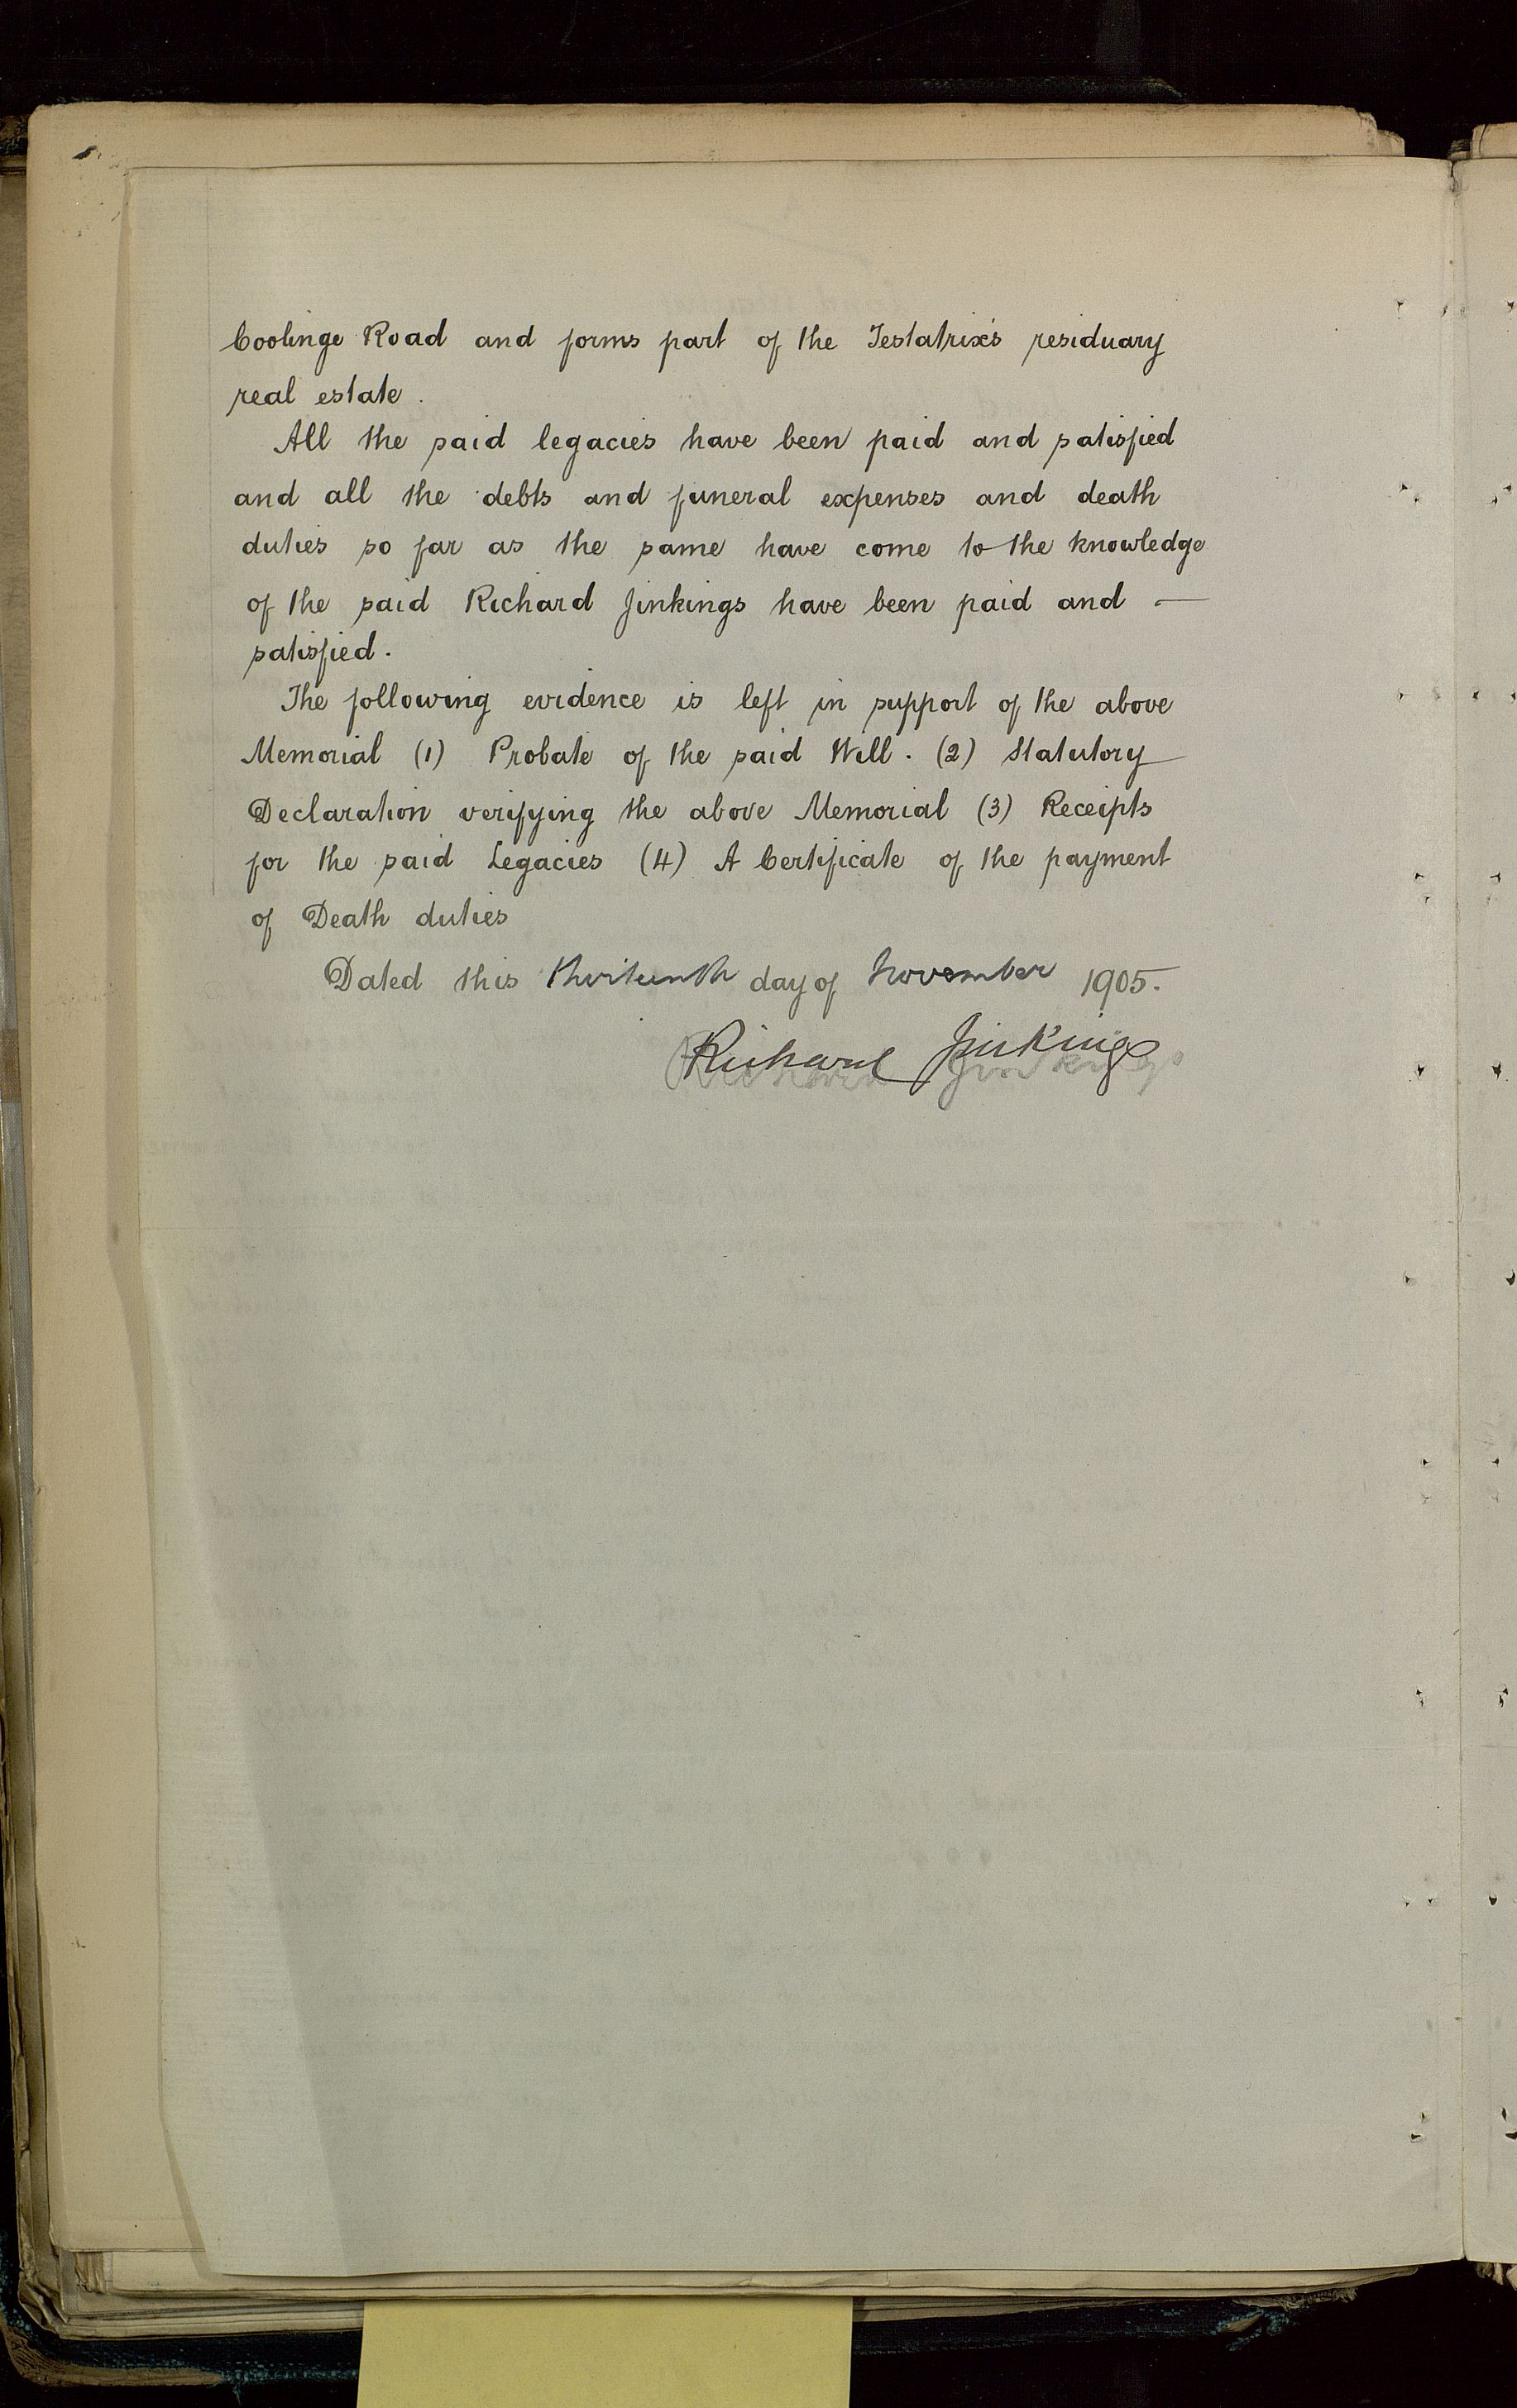 Coolinge Road and forms part of the Testatrix's residuary
real estate.
All the said legacies have been paid and satisfied
and all the debts and funeral expenses and death
duties so far as the same have come to the knowledge
of the said Richard Jinkings have been paid and —
satisfied.
The following evidence is left in support of the above
Memorial (1) Probate of the said Will. (2) Statutory
Declaration verifying the above Memorial (3) Receipts
for the said Legacies (4) A Certificate of the payment
of Death duties
Dated this thirteenth day of November 1905.
Richard Jinkings